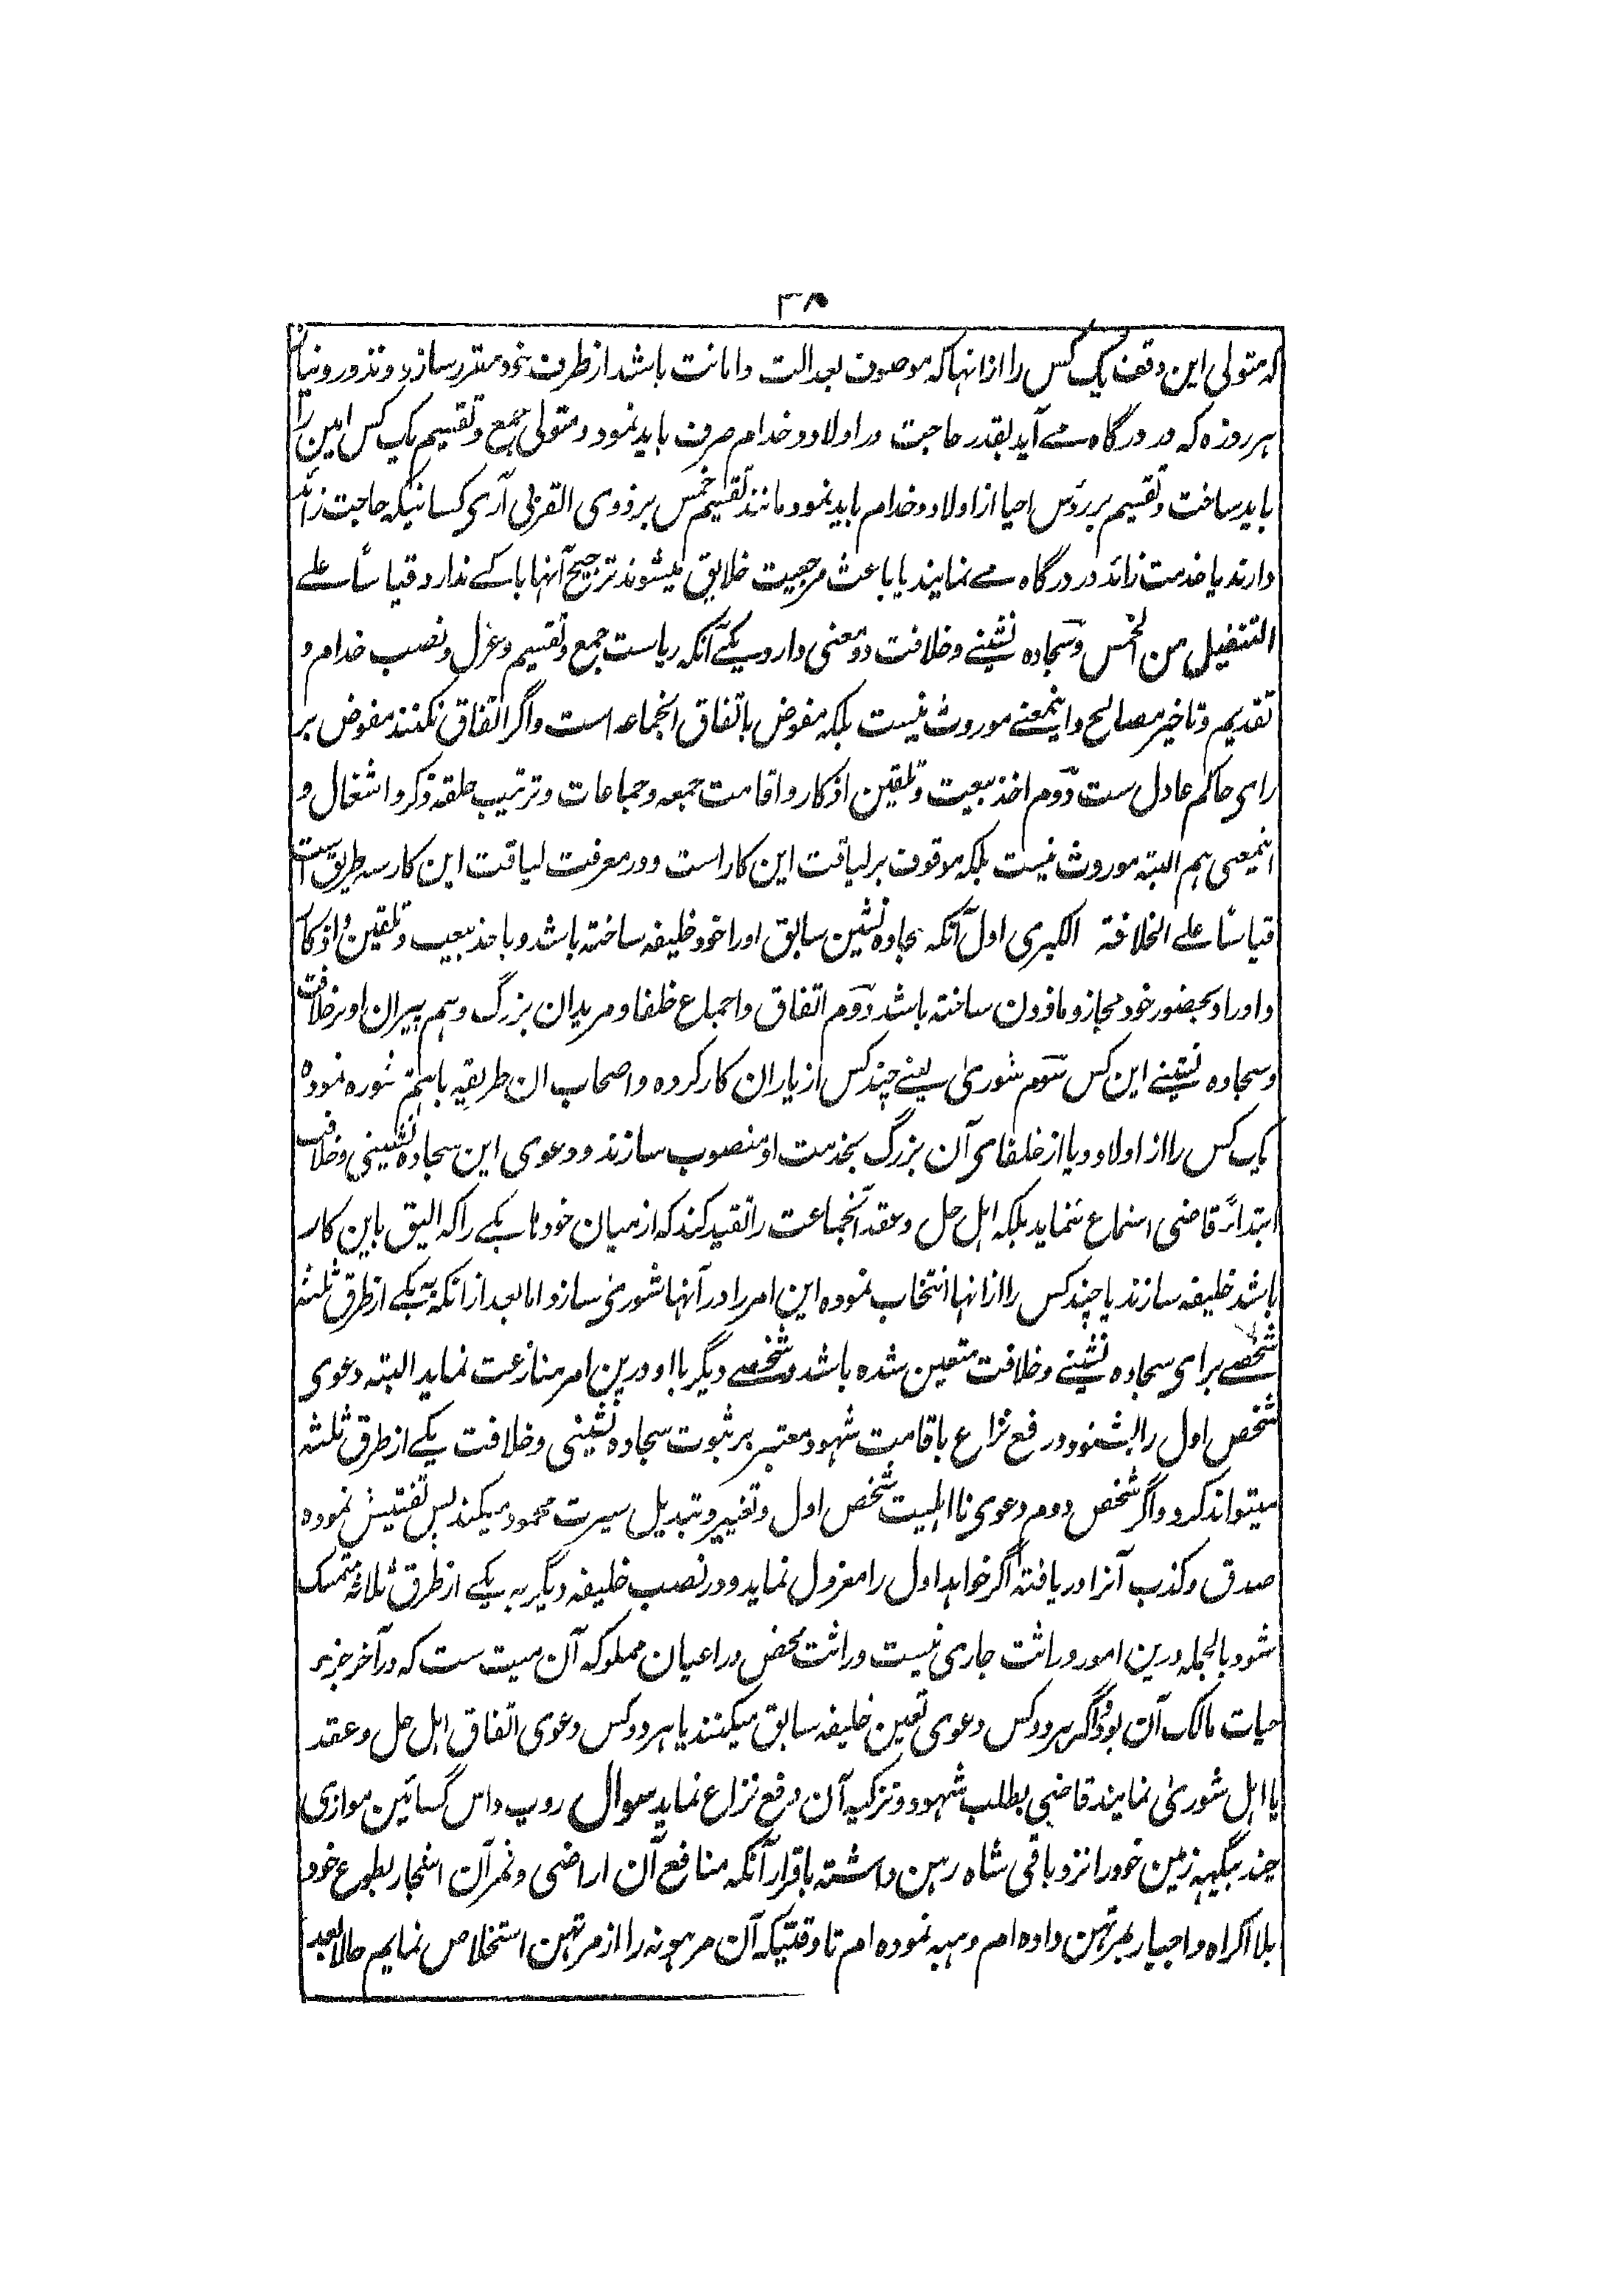 ۳۸
که متولی این وقف یک کس را ازانها که موصوف بعدالت و امانت باشد از طرف خود مقرر سازد و نذور و نیاز
هر روزه که در درگاه مے آید بقدر حاجت در اولاد و خدام صرف باید نمود و متولی جمع و تقسیم یک کس امین را
باید ساخت و تقسیم بر رؤس احیا از اولاد و خدام باید نمود مانند تقسیم خمس بر ذوی القربی آری کسانیکه حاجت زائد
دارند یا خدمت زائد در درگاه مے نمایند یا باعث مرجعیت خلایق میشوند ترجیح آنها باکے ندارد قیاساً علے
التنفیل من الخمس و سجاده نشینے و خلافت دو معنی دارد یکے آنکه ریاست جمع و تقسیم و عزل و نصب خدام و
تقدیم و تاخیر مصالح و اینمعنے موروث نیست بلکه مفوض باتفاق انجماعه است و اگر اتفاق نکنند مفوض بر
رای حاکم عادل ست دوم اخذ بیعت و تلقین اذکار و اقامت جمعه و جماعات و ترتیب حلقه ذکر و اشغال و
اینمعنی هم البته موروث نیست بلکه موقوف بر لیاقت این کار است و در معرفت لیاقت این کار سه طریق ست
قیاساً علے الخلافة الکبری اول آنکه سجاده نشین سابق او را خود خلیفه ساخته باشد و باخذ بیعت و تلقین و اذکار
و اوراد بحضور خود مجاز و ماذون ساخته باشد دوم اتفاق و اجماع خلفا و مریدان بزرگ و هم پیران او بر خلافت
و سجاده نشینے این کس سوم شوریٰ یعنے چند کس از یاران کار کرده و اصحاب ان طریقه باهم مشوره نموده
یک کس را از اولاد و یا از خلفای آن بزرگ بخدمت او منصوب سازند و دعوی این سجاده نشینی و خلافت
ابتداءً قاضی استماع ننماید بلکه اهل حل و عقد آنجماعت را تقید کند که از میان خودها یکے را که الیق باین کار
باشد خلیفه سازند یا چند کس را ازانها انتخاب نموده این امر را در آنها شوری سازد اما بعد ازانکه به یکے از طرق ثلثه
شخصے برای سجاده نشینے و خلافت متعین شده باشد و شخصے دیگر با او درین امر منازعت نماید البته دعوی
شخص اول را بشنود و رفع نزاع باقامت شهود معتبر بر ثبوت سجاده نشینی و خلافت یکے از طرق ثلثه
میتواند کرد و اگر شخص دوم دعوی نااهلیت شخص اول و تغییر و تبدیل سیرت محمود میکند پس تفتیش نموده
صدق و کذب آنرا دریافته اگر خواهد اول را معزول نماید و در نصب خلیفه دیگر به یکے از طرق ثلاثه متمسک
شود بالجمله درین امور وراثت جاری نیست وراثت محض در اعیان مملوکه آن میت ست که در آخر جزء
حیات مالک آن بود و اگر هر دو کس دعوی تعین خلیفه سابق میکنند یا هر دو کس دعوی اتفاق اهل حل و عقد
یا اهل شوریٰ نمایند قاضی بطلب شهود و تزکیه آن رفع نزاع نماید سوال روپ داس گسائین موازی
چند بیگهه زمین خود را نزد باقی شاه رهن داشته باقرار آنکه منافع آن اراضی و ثمر آن اشجار بطوع خود
بلا اکراه و اجبار بمرتهن داده ام و هبه نموده ام تا وقتیکه آن مرهونه را از مرتهن استخلاص نمایم حالا بعد